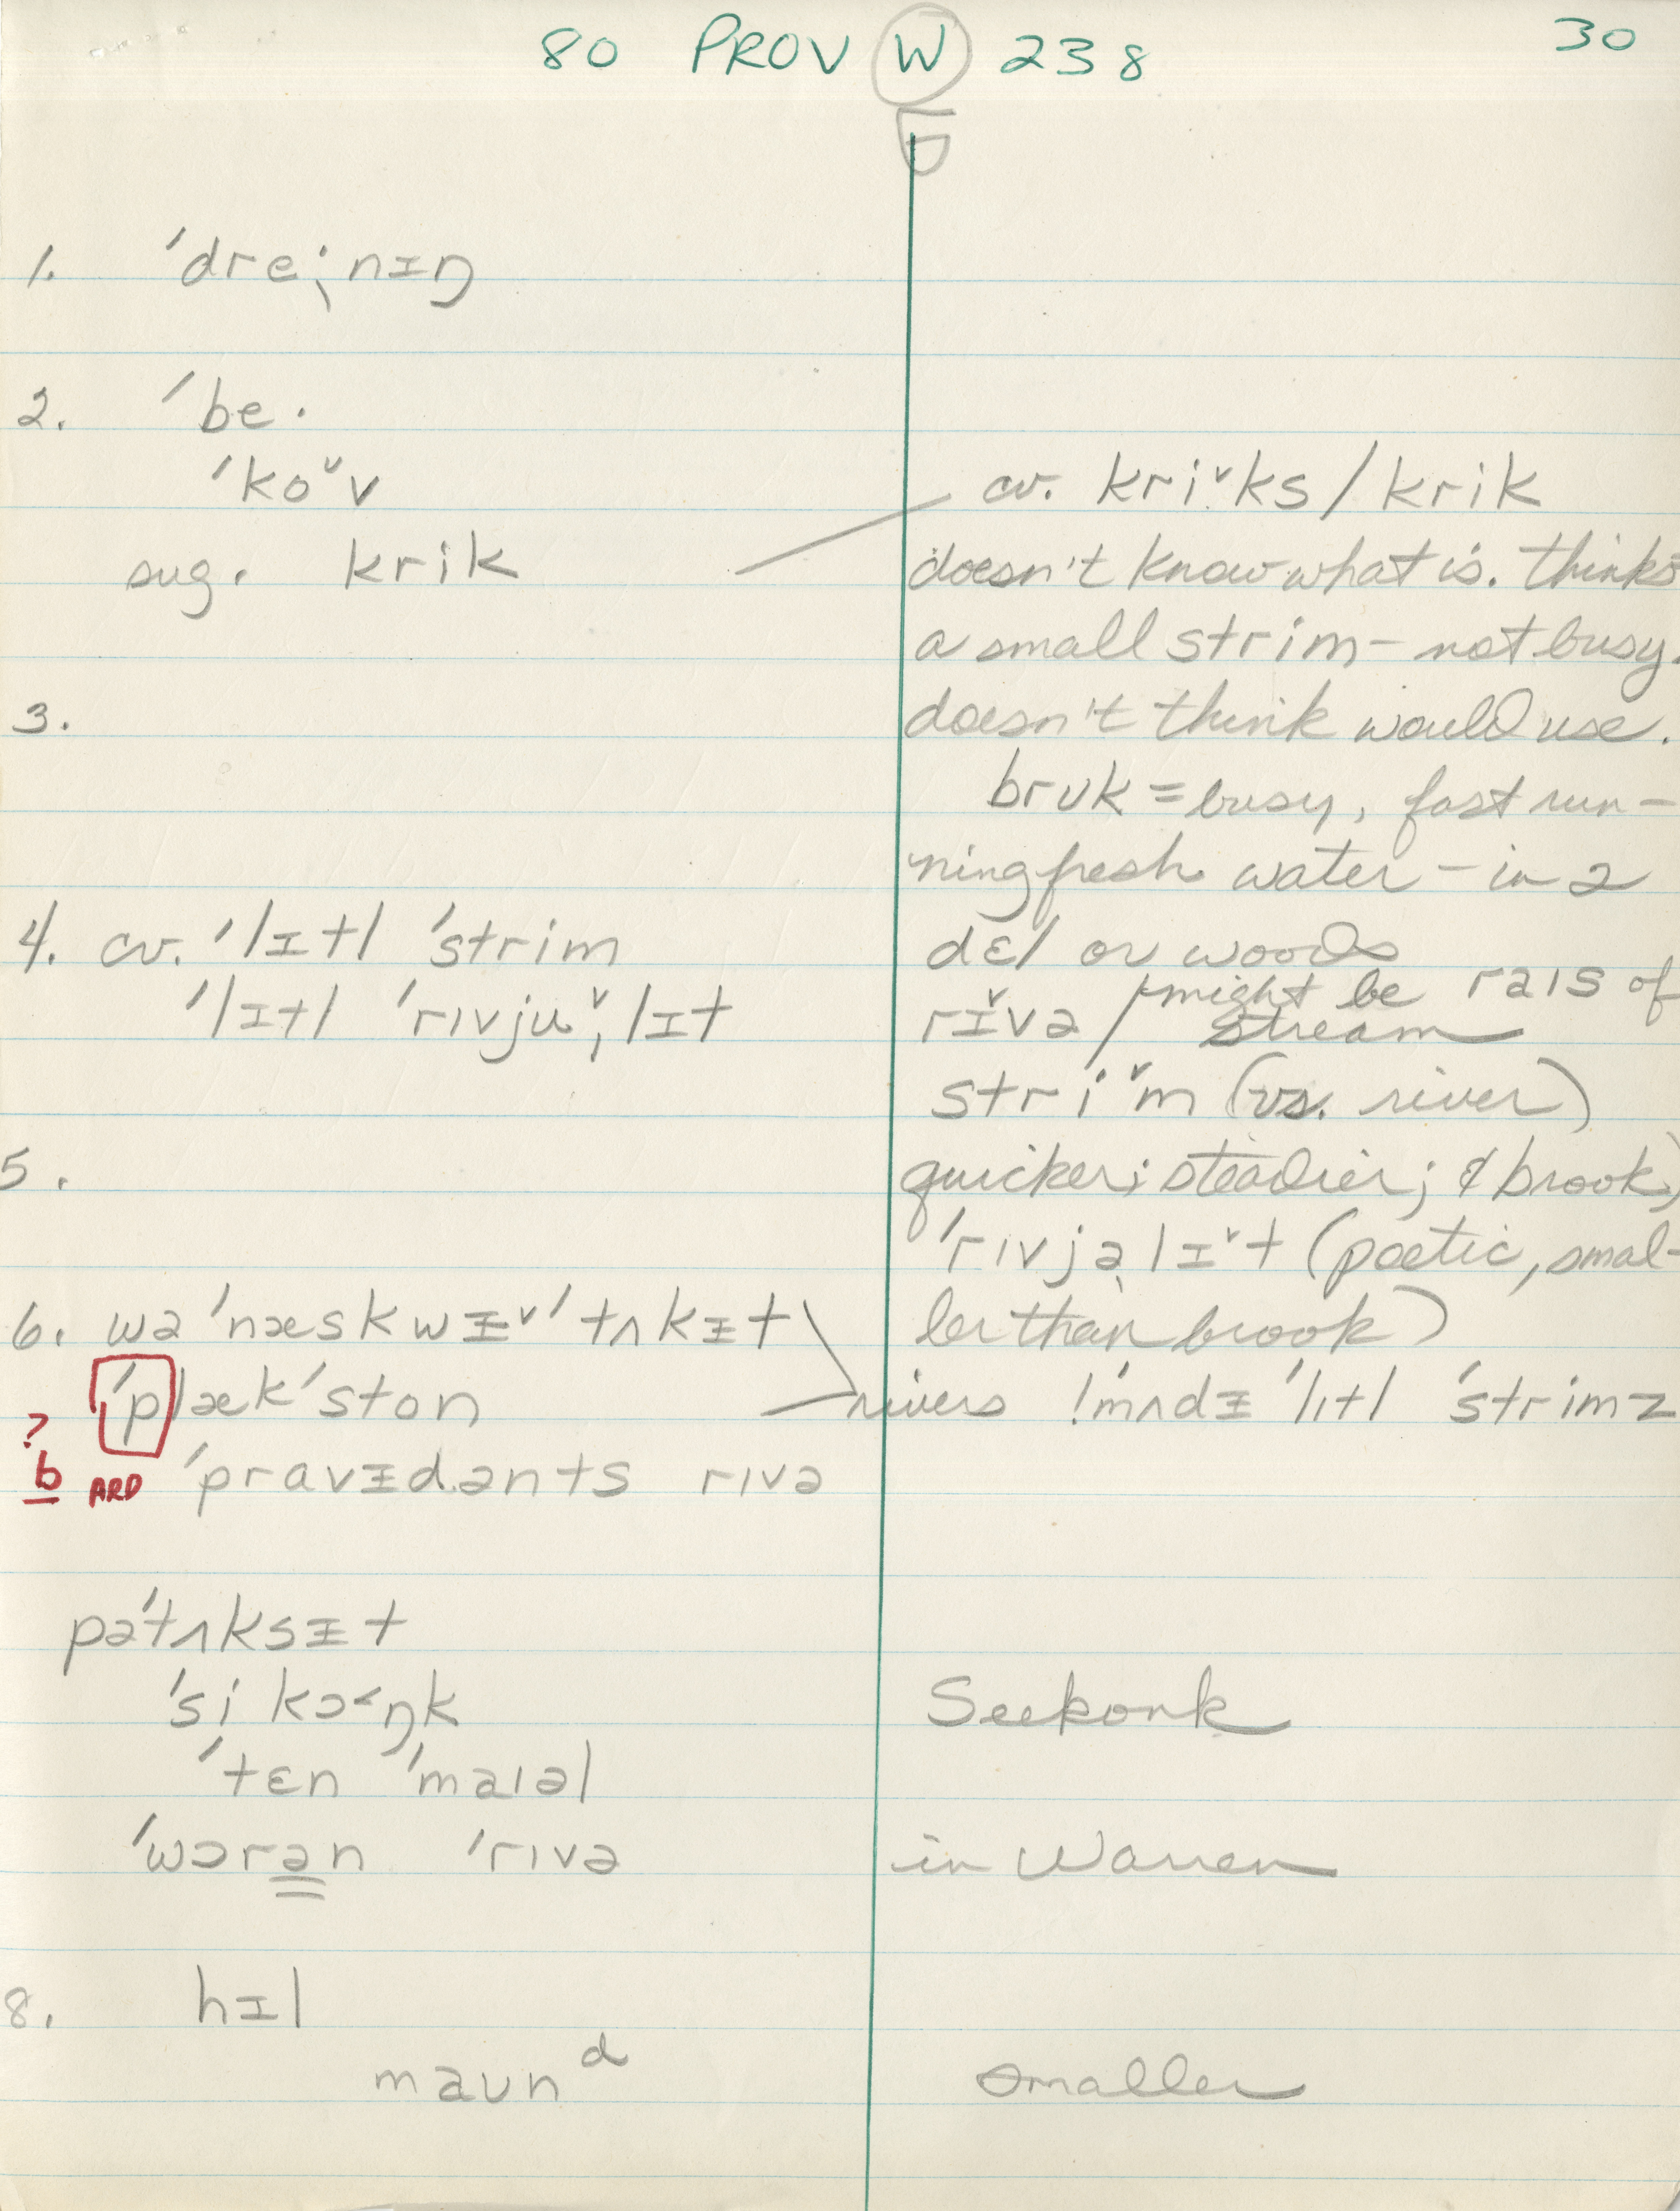 80 PROV W 238 30
1. ˈdreˑ̩nɪŋ
2. ˈbeˑ
ˈkoˇv
cv. kriˇks / krik
sug. krik
doesn't know what is. thinks
a small strim – not busy.
3.
doesn't think would use.
brʊk = busy, fast run–
ning fresh water – in a
4. cv. ˈlɪtl ˈstrim
dɛl or woods
ˈlɪtl ˈrɪvjuˇˌlɪt
rɪˇvə / might be raɪs of
stream
striˇm (vs. river)
5.
quicker; steadier; & brook)
ˈrɪvjəˌlɪˇt (poetic, smal–
6. wəˈnæskwᵻˇˈtʌkɪt
ler than brook)
ˈplæk ˈston
rivers ! ˈmʌdᵻ ˈlɪtl ˈstrimz
? b ARD
ˈpravᵻdənts rɪvə
pəˈtʌksᵻt
ˈsiˌkɔ˂ŋk
Seekonk
ˈtɛn ˈmaɪəl
ˈwɔrən ˈrɪvə
in Warren
8. hɪl
maʊnᵈ
smaller